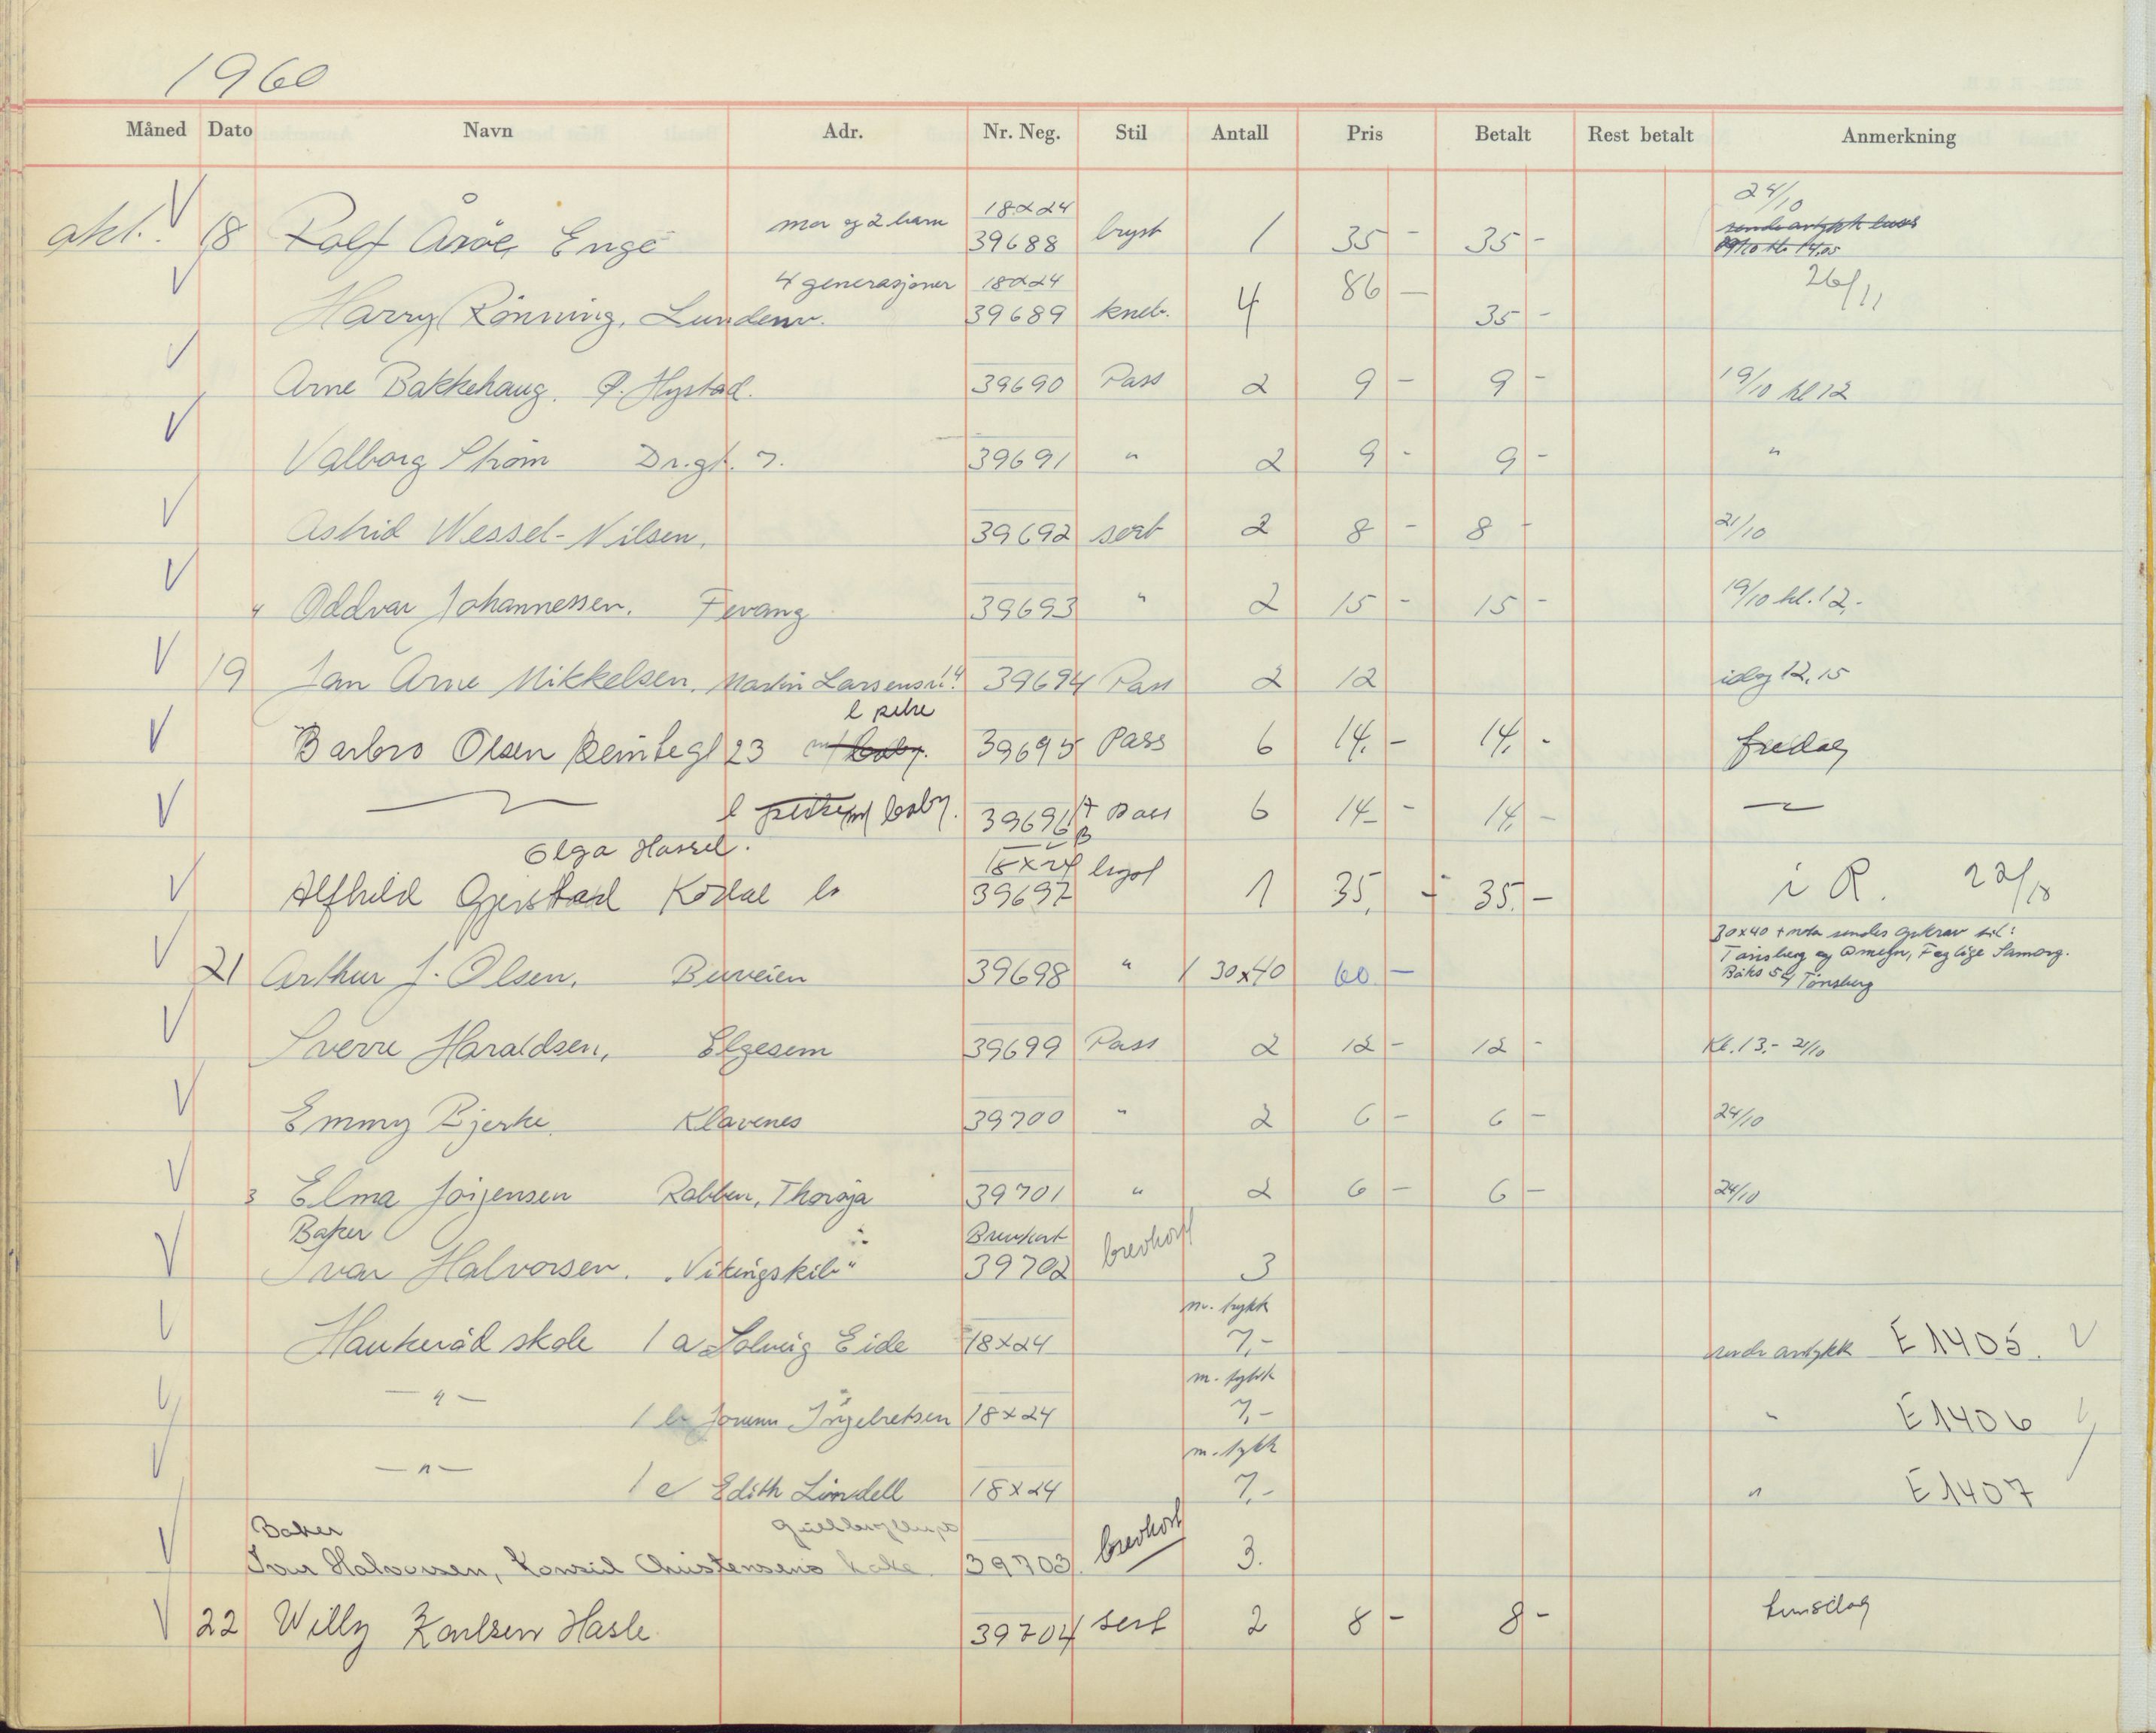 1960
Måned Dato Navn Adr. Nr. Neg. Stil Antall Pris Betalt Rest betalt Anmerkning
24/10
mor og 2 barn 18x24
okt. V 18 Rolf Årøe, Enge 39688 bryst 1 35 - 35 -
4 generasjoner 18x24 86 - 26/11
V Harry Rönning, Lundenv. 39689 kneb. 4 35 -
V Arne Bakkehaug. P. Hystad. 39690 Pass 2 9 - 9 - 19/10 kl 12
V Valborg Strøm Dr.gt. 7. 39691 " 2 9 - 9 - "
V Astrid Wessel-Nilsen. 39692 sert 2 8 - 8 - 21/10
V " Oddvar Johannessen. Fevang 39693 " 2 15 - 15 - 19/10 kl. 12.-
V 19 Jan Arne Mikkelsen. Martin Larsensv. 39694 Pass 2 12 idag 12.15
V Barbro Olsen 23 m/ baby. 39695 Pass 6 14,- 14,- fredag
V — " — baby. 39696 A B Pass 6 14 - 14, - — " —
Olga Hassel. 18x24
V Alfhild Gjerstad Kodal 39697 bryst 1 35,- 35.- i R. 22/10
30x40 + nota sendes opkrav til:
Tønsberg og Omegn, Faglige Samorg.
Boks 54 Tønsberg
V 21 Arthur J. Olsen. Bueveien 39698 " 1 30x40 60 -
V Sverre Haraldsen, Elgesem 39699 Pass 2 12 - 12 - Kl. 13.- 21/10
V Emmy Bjerke Klavenes 39700 " 2 6 - 6 - 24/10
V 3 Elma Jörgensen Rabben, Thorøya 39701 " 2 6 - 6 - 24/10
Baker
V Ivar Halvorsen. "Vikingskib" 39702 brevkort 3
m. trykk
V Haukeråd skole 1 a Solveig Eide 18x24 7,- E 1405. V
m. trykk
V — " — 1 b Ingebretsen 18x24 7,- " E 1406 V
m. trykk
V — " — 1 c Edith Lindell 18x24 7,- " E 1407
Baker
V Ivar Halvorsen, Konsul Christensens kake 39703 brevkort 3.
V 22 Willy Karlsen Hasle 39704 sert 2 8 - 8 - tirsdag